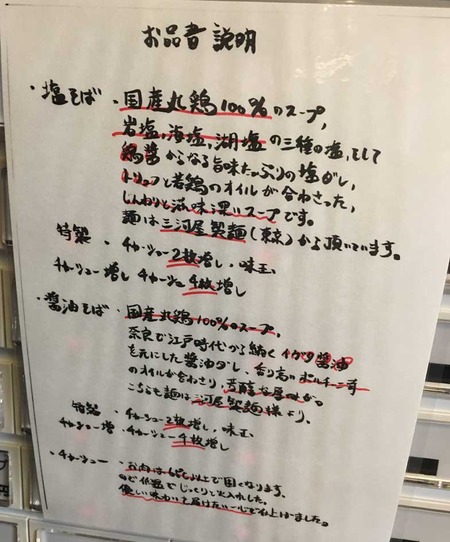 お品書 説明
・塩そば・国産丸鶏100%のスープ,
岩塩,海塩,湖塩の三種の塩,そして
鶏醬からなる旨味たっぷりの塩ダレ,
トリュフと若鶏のオイルが合わさった,
じんわりと滋味深いスープです。
麺は三河屋製麺(東京)から頂いています。
特製・チャーシュー2枚増し・味玉
チャーシュー増し チャーシュー4枚増し
・醬油そば・国産丸鶏100%のスープ。
奈良で江戸時代から続くイゲタ醤油
を元にした醬油ダレ、香り高いポルチーニ茸
のオイルが合わさり、芳醇な
こちらも麺は三河屋製麺様より、
特製・チャーシュー2枚増し・味玉、
チャーシュー増・チャーシュー4枚増し
・チャーシュー・お肉は 以上で固くなります、
ので低温でじっくりと火入れした。
優しい味わいで仕上げました。